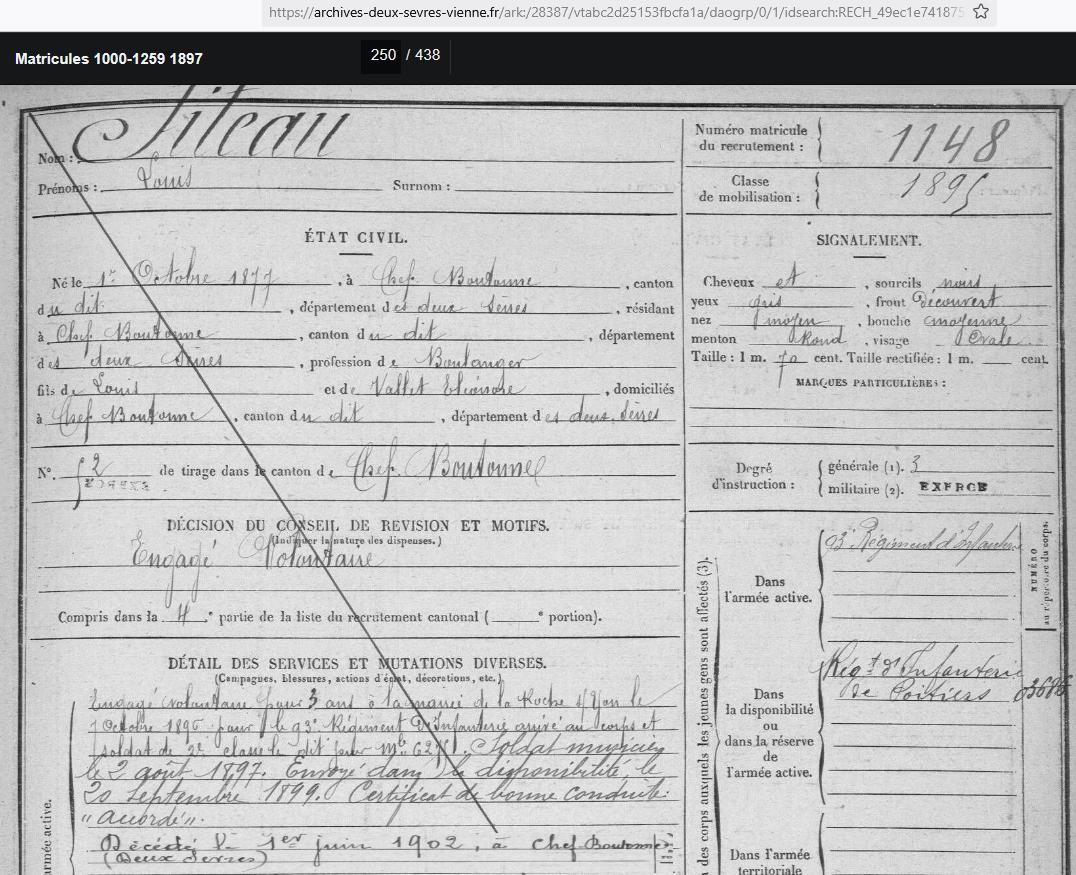 https://archives-deux-sevres-vienne.fr/ark:/28387/vtabc2d25153fbcfa1a/daogrp/0/1/idsearch:RECH_49ec1e741875
Matricules 1000-1259 1897
250 / 438
Nom : Siteau
Prénoms : Louis Surnom :
Numéro matricule du recrutement : 1148
Classe de mobilisation : 1895
ÉTAT CIVIL.
Né le 1er Octobre 1877, à Chef Boutonne, canton
du dit, département des deux Sèvres, résidant
à Chef Boutonne, canton du dit, département
des deux Sèvres, profession de Boulanger
fils de Louis et de Vallet Eléonore, domiciliés
à Chef Boutonne, canton du dit, département des deux Sèvres
N° 2 de tirage dans le canton de Chef. Boutonne
DÉCISION DU CONSEIL DE REVISION ET MOTIFS.
(Indiquer la nature des dispenses.)
Engagé Volontaire
Compris dans la 4e partie de la liste du recrutement cantonal ( e portion).
DÉTAIL DES SERVICES ET MUTATIONS DIVERSES.
(Campagnes, blessures, actions d'éclat, décorations, etc.)
Engagé volontaire pour 3 ans à la mairie de la Roche s/Yon le
Octobre 1896 pour le 93e Régiment d'Infanterie arrivé au corps et
soldat de 2e classe le dit jour Mle Soldat musicien
le 2 août 1897. Envoyé dans la disponibilité le
20 Septembre 1899. Certificat de bonne conduite
"accordé".
Décédé le 1er juin 1902, à Chef-Boutonne
(Deux Sèvres)
armée active.
SIGNALEMENT.
Cheveux et, sourcils noirs
yeux gris, front Découvert
nez moyen, bouche moyenne
menton Rond, visage Ovale
Taille : 1 m. 70 cent. Taille rectifiée : 1 m. cent.
MARQUES PARTICULIÈRES :
Degré d'instruction :
générale (1). 3
militaire (2). EXERCÉ
des corps auxquels les jeunes gens sont affectés (3).
NUMÉRO
au répertoire du corps.
Dans
l'armée active.
93e Régiment d'Infanterie
Dans
la disponibilité
ou
dans la réserve
de
l'armée active.
Régt d'Infanterie
de Poitiers
Dans l'armée
territoriale